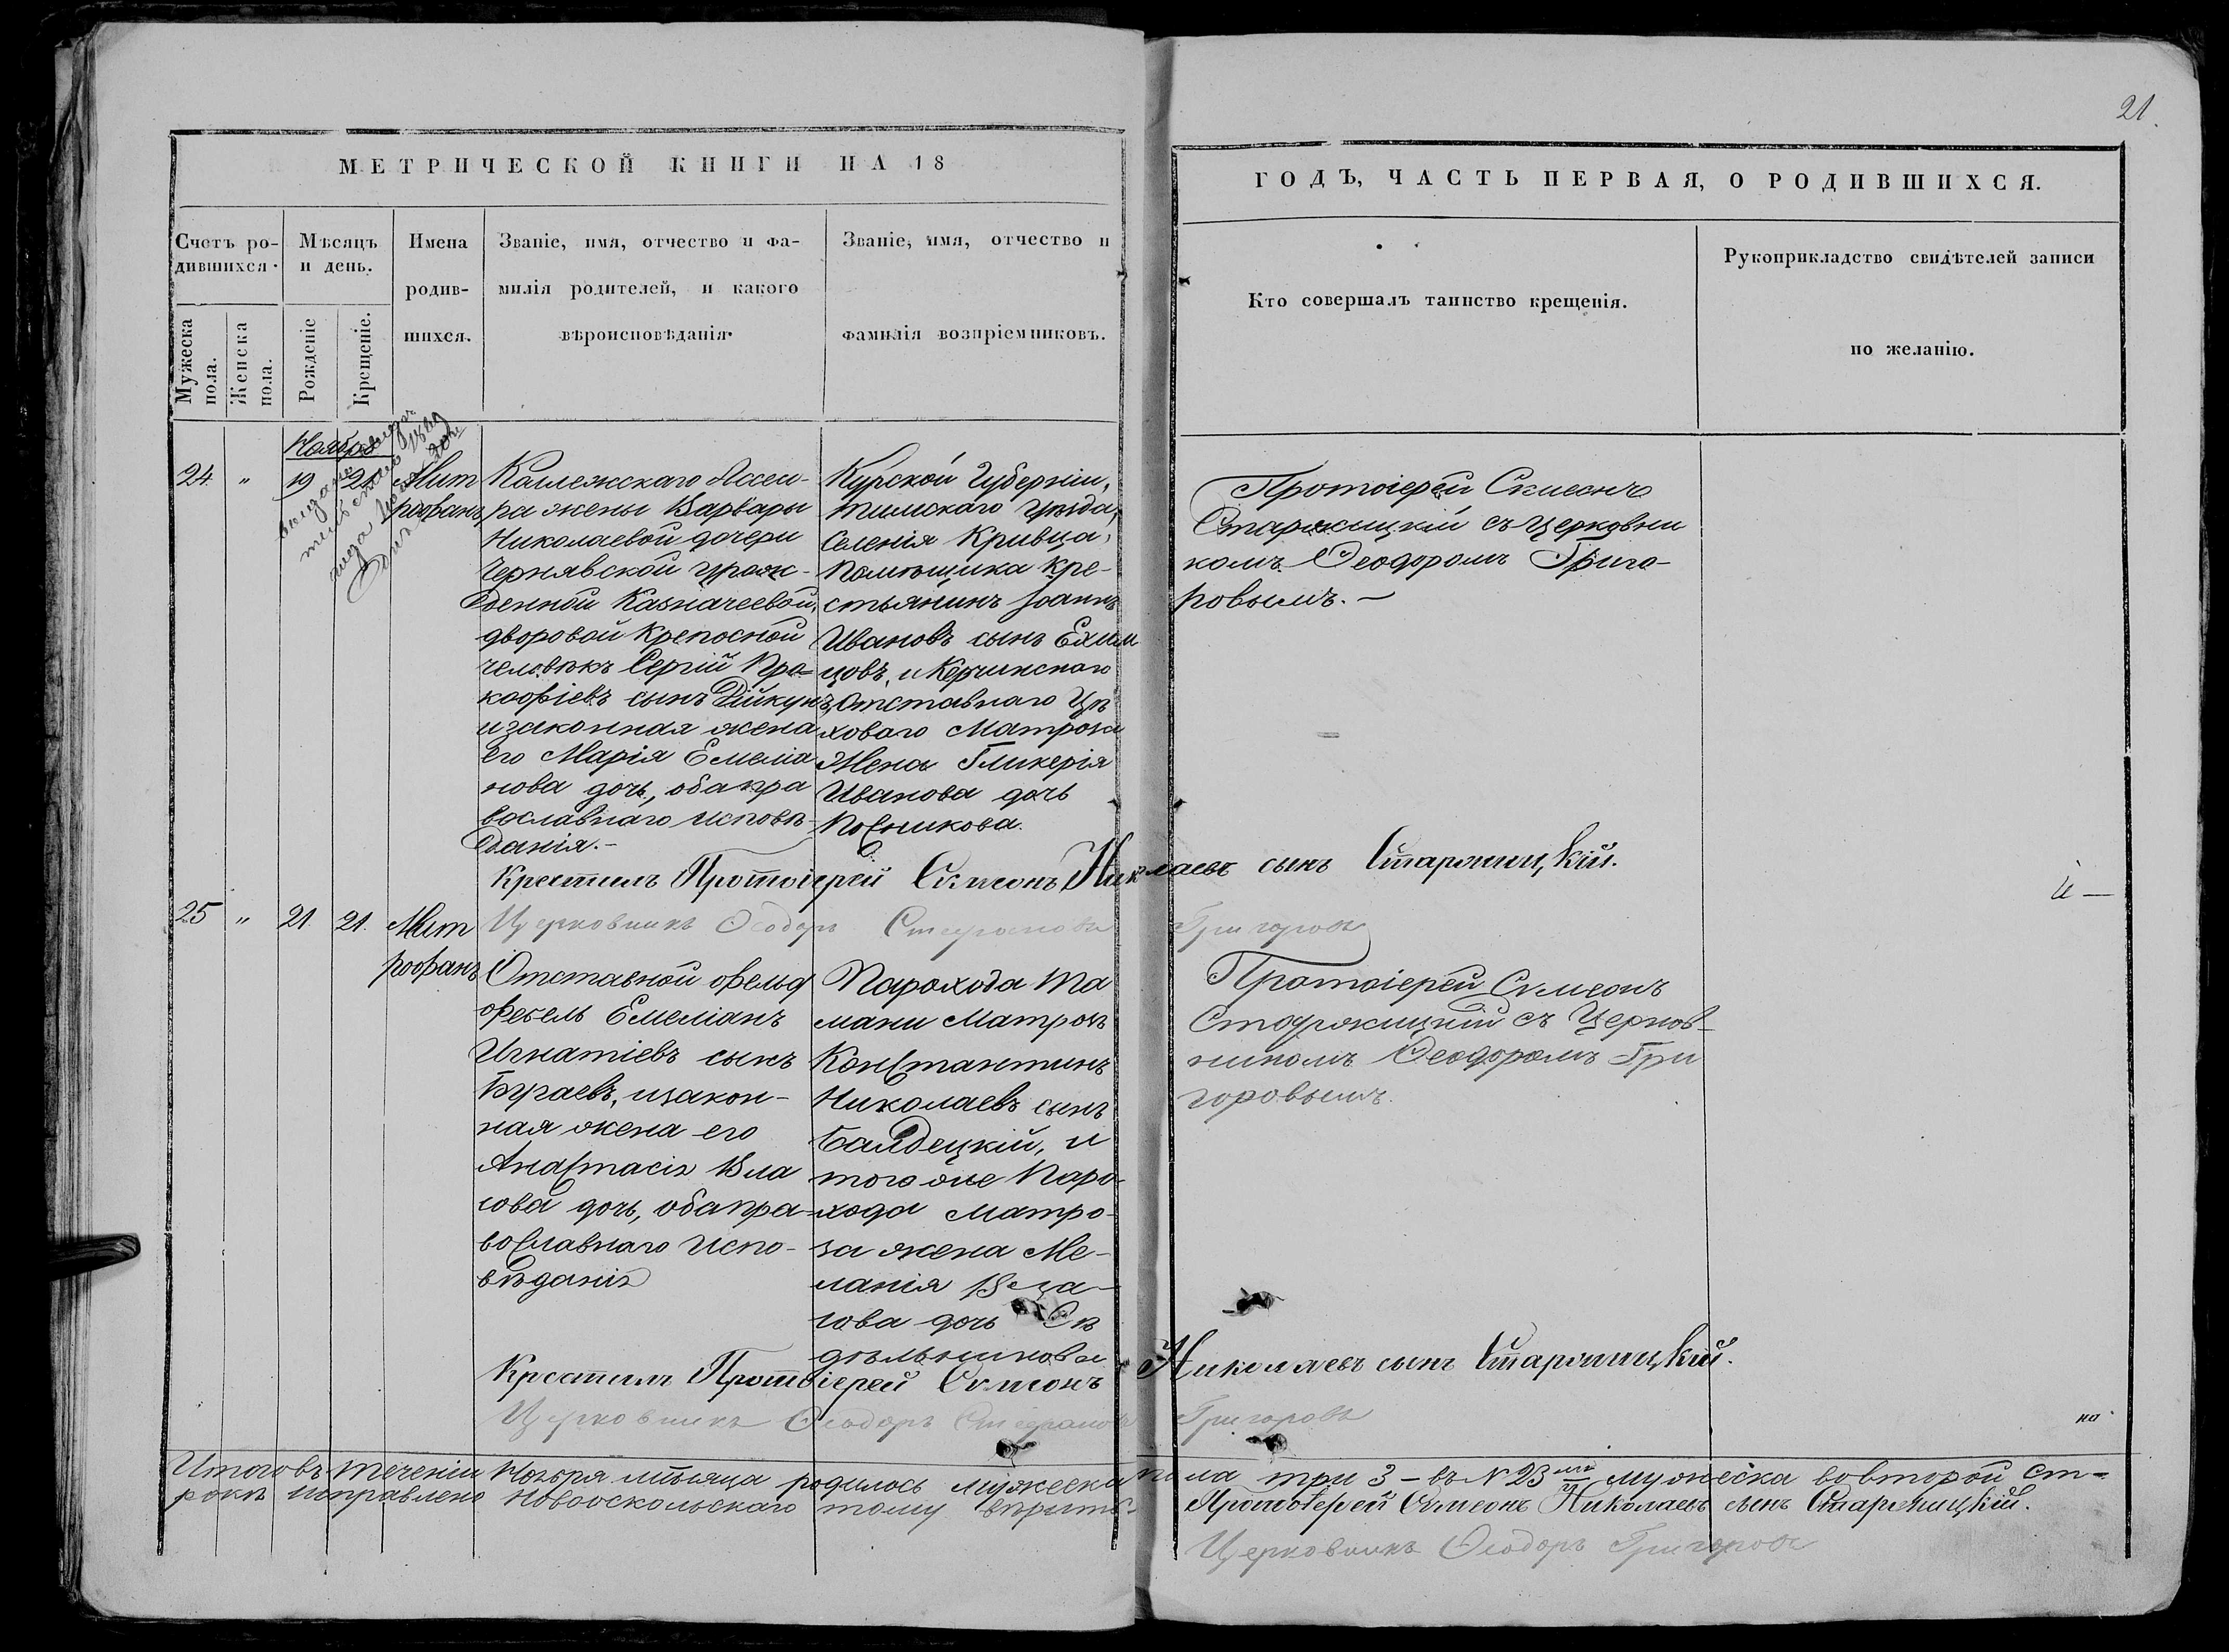 21.
МЕТРИЧЕСКОЙ КНИГИ НА 18
ГОДЪ, ЧАСТЬ ПЕРВАЯ, О РОДИВШИХСЯ.
Счетъ ро-
дившихся.
Мужеска
пола.
Женска
пола.
Мѣсяцъ
и день.
Рожденіе
Крещеніе.
Имена
родив-
шихся.
Званіе, имя, отчество и фа-
милія родителей, и какого
вѣроисповѣданія.
Званіе, имя, отчество и
фамилія воспріемниковъ.
Кто совершалъ таинство крещенія.
Рукоприкладство свидѣтелей записи
по желанію.
Ноября
24. " 19 21. Мит
рофанъ
Коллежскаго Ассесо-
ра жены Варвары
Николаевой дочери
Чернявской урож-
денной Казначеевой,
дворовой крепосной
человѣкъ Сергій Про-
кофіевъ сынъ Дикунъ
и законная жена
его Марія Емелiа
нова дочь, оба пра
вославнаго исповѣ-
данія.-
Курской Губерніи,
Тимскаго уѣзда,
Селенія Кривца,
Помѣщика кре-
стьянинъ Іоаннъ
Ивановъ сынъ
цовъ, и Керчинскаго
отставнаго Цѣ
ховаго Матроса
Жена Гликерія
Иванова дочь
Посникова.
Протоіерей Симеонъ
Старжицкій съ церковни
комъ Ѳеодоромъ Григо-
ровымъ.-
Крестилъ Протоіерей Симеонъ Николаевъ сынъ Старжицкій.
Церковникъ Ѳеодоръ Стефановъ Григоровъ
25 " 21. 21. Мит
рофанъ
Отставной фельд
фебель Емеліанъ
Игнатіевъ сынъ
Бураевъ, и закон-
ная жена его
Анастасія Вла
сова дочь, оба пра-
вославнаго испо-
вѣданія
Парохода Та
мани Матрозъ
Константинъ
Николаевъ сынъ
и
того же Паро-
хода матро-
за жена Ме-
ланія
сова дочь Сѣ
дѣльникова
Протоіерей Симеонъ
Старжицкій съ Церков-
никомъ Ѳеодоромъ Гри
горовымъ.
Крестилъ Протоіерей Симеонъ Николаевъ сынъ Старжицкій.
Церковникъ Ѳеодоръ Стефановъ Григоровъ
Итого въ теченіи Ноября мѣсяца родилось мужеска пола три 3 - въ N 23мъ мужеска во второй ст-
рокѣ исправлено Новооскольскаго тому вѣрить.
Протоіерей Симеонъ Николаевъ сынъ Старжицкій.
Церковникъ Ѳеодоръ Григоровъ